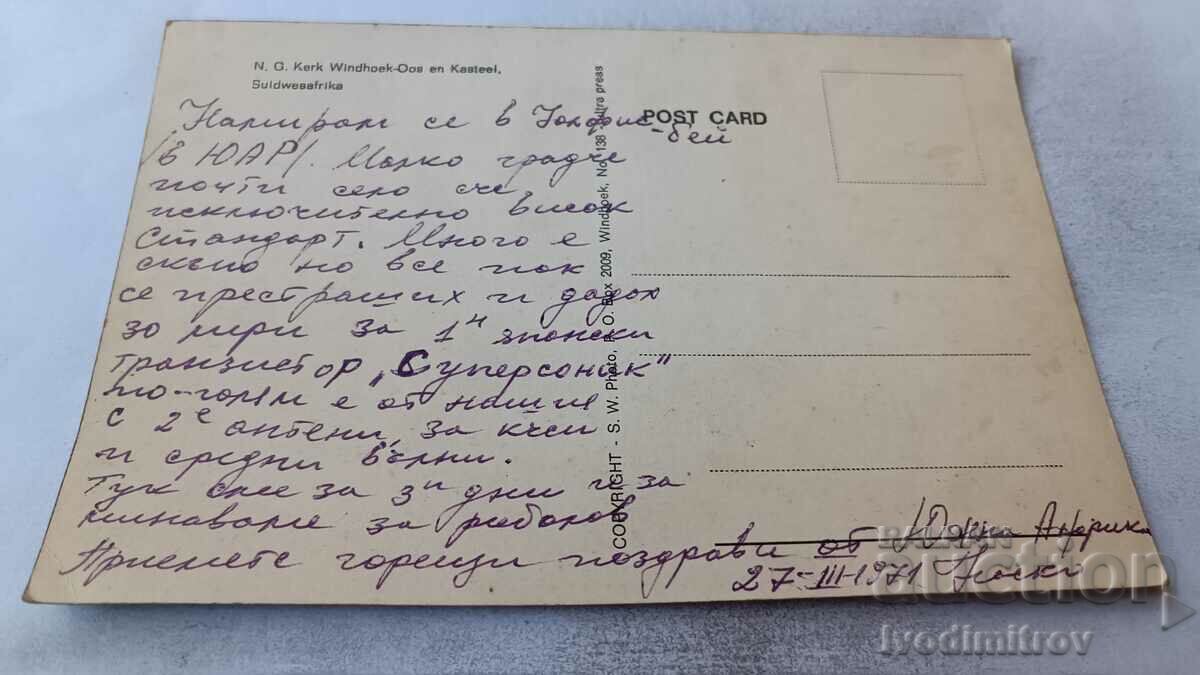 N. G. Kerk Windhoek-Oos en Kasteel,
Suidwesafrika
POST CARD
COPYRIGHT - S. W. Photo, P. O. Box 2009, Windhoek, No. 138 press
Намирам се в Уолфис-бей
/в ЮАР/. Малко градче
почти село с
изключително висок
стандарт. Много е
скъпо но все пак
се престраших и дадох
30 лири за 1н японски
транзистор „Суперсоник"
по-голям е от нашия
с 2е антени, за къси
и средни вълни.
Тук сме за 3 дни и за
минаваме за риболов
Приемете горещи поздрави от Южна Африка
27-III-1971
BALKAN
auction
Ivodimitrov